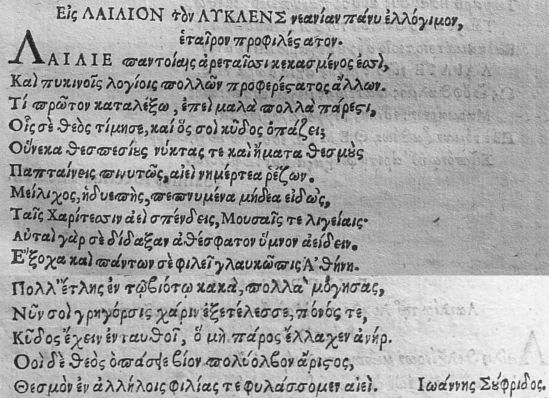 Εἰς ΛΑΙΛΙΟΝ τὸν ΛΥΚΛΕΝΣ νεανίαν πάνυ ἐλλόγιμον,
ἑταῖρον προφιλέστατον.
ΛΑΙΛΙΕ παντοίαις ἀρεταῖσι κεκασμένος ἐσσὶ,
Καὶ πυκινοῖς λογίοις πολλῶν προφερέστατος ἄλλων.
Τί πρῶτον καταλέξω, ἐπεὶ μαλὰ πολλὰ πάρεστι,
Οἷς σὲ θεὸς τίμησε, καὶ ὅς σοὶ κῦδος ὀπάζει;
Οὕνεκα θεσπεσίους νύκτας τε καὶ ἤματα θεσμοὺς
Παπταίνεις πινυτῶς, αἰεὶ νημέρτεα ῥέζων.
Μείλιχος, ἡδυεπὴς, πεπνυμένα μήδεα εἰδὼς,
Ταῖς Χαρίτεσσιν ἀεὶ σπένδεις, Μουσαῖς τε λιγείαις·
Αὐταὶ γὰρ σὲ δίδαξαν ἀθέσφατον ὕμνον ἀείδειν.
Ἔξοχα καὶ πάντων σὲ φιλεῖ γλαυκῶπις Ἀθήνη.
Πολλ' ἔτλης ἐν τῷ βιότῳ κακὰ, πολλὰ μόγησας,
Νῦν σοὶ γρηγόρσις χάριν ἐξετέλεσσε, πόνός τε,
Κῦδος ἔχειν ἐνταυθοῖ, ὃ μὴ πάρος ἔλλαχεν ἀνήρ.
Οοὶ δὲ θεὸς ὀπάσειε βίον πολύολβον ἄριστος,
Θεσμὸν ἐν ἀλλήλοις φιλίας τε φυλάσσομεν αἰεί. Ιωάννης Σύφριδος.